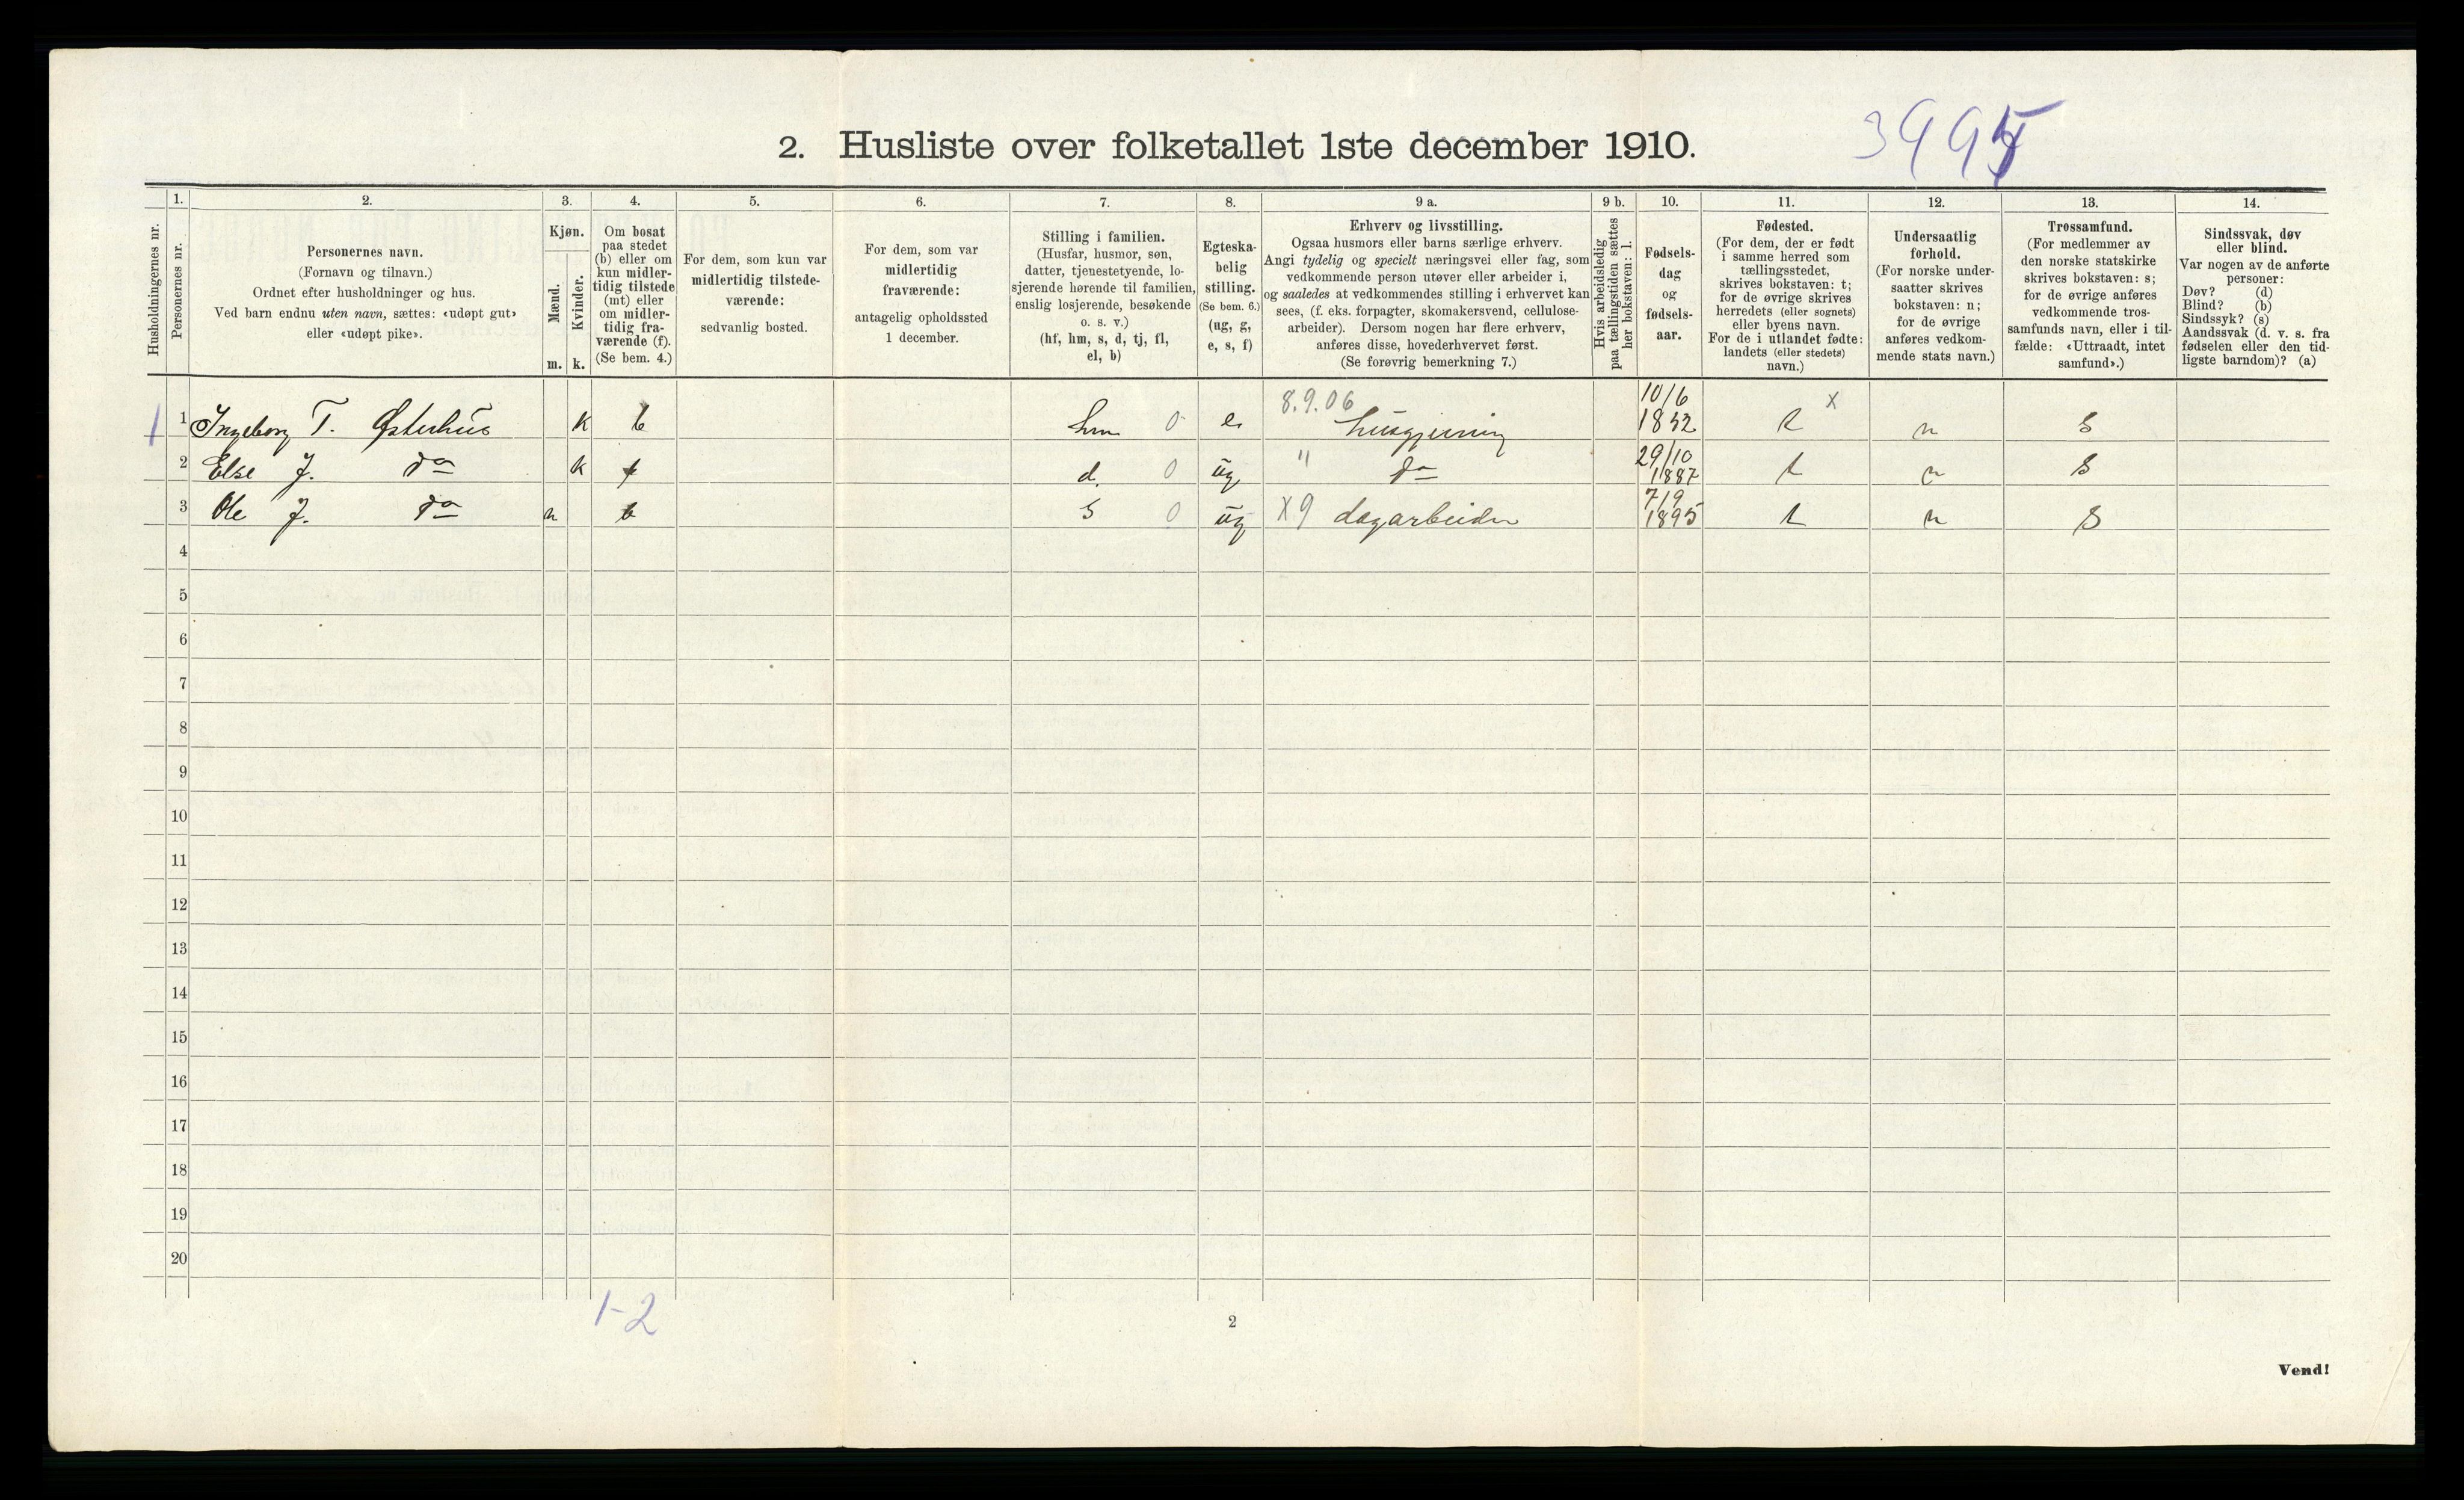 2. Husliste over folketallet 1ste december 1910.
3995
Husholdningernes nr.
1.
Personernes nr.
2.
Personernes navn.
(Fornavn og tilnavn.)
Ordnet efter husholdninger og hus.
Ved barn endnu uten navn, sættes: «udøpt gut»
eller «udøpt pike».
3.
Kjøn.
Mænd.
Kvinder.
m. k.
4.
Om bosat
paa stedet
(b) eller om
kun midler-
tidig tilstede
(mt) eller
om midler-
tidig fra-
værende (f).
(Se bem. 4.)
5.
For dem, som kun var
midlertidig tilstede-
værende:
sedvanlig bosted.
6.
For dem, som var
midlertidig
fraværende:
antagelig opholdssted
1 december.
7.
Stilling i familien.
(Husfar, husmor, søn,
datter, tjenestetyende, lo-
sjerende hørende til familien,
enslig losjerende, besøkende
o. s. v.)
(hf, hm, s, d, tj, fl,
el, b)
8.
Egteska-
belig
stilling.
(Se bem. 6.)
(ug, g,
e, s, f)
9 a.
Erhverv og livsstilling.
Ogsaa husmors eller barns særlige erhverv.
Angi tydelig og specielt næringsvei eller fag, som
vedkommende person utøver eller arbeider i,
og saaledes at vedkommendes stilling i erhvervet kan
sees, (f. eks. forpagter, skomakersvend, cellulose-
arbeider). Dersom nogen har flere erhverv,
anføres disse, hovederhvervet først.
(Se forøvrig bemerkning 7.)
9 b.
Hvis arbeidsledig
paa tællingstiden sættes
her bokstaven: l.
10.
Fødsels-
dag
og
fødsels-
aar.
11.
Fødested.
(For dem, der er født
i samme herred som
tællingsstedet,
skrives bokstaven: t;
for de øvrige skrives
herredets (eller sognets)
eller byens navn.
For de i utlandet fødte:
landets (eller stedets)
navn.)
12.
Undersaatlig
forhold.
(For norske under-
saatter skrives
bokstaven: n;
for de øvrige
anføres vedkom-
mende stats navn.)
13.
Trossamfund.
(For medlemmer av
den norske statskirke
skrives bokstaven: s;
for de øvrige anføres
vedkommende tros-
samfunds navn, eller i til-
fælde: «Uttraadt, intet
samfund».)
14.
Sindssvak, døv
eller blind.
Var nogen av de anførte
personer:
Døv? (d)
Blind? (b)
Sindssyk? (s)
Aandssvak (d. v. s. fra
fødselen eller den tid-
ligste barndom)? (a)
8.9.06 10/6 x
1 1 Ingeborg T. Østerhus k b hm 0 e husgjerning 1852 t n s
2 Else J. do k b d. 0 ug " do 29/10 1887 t n s
3 Ole J. do m b s 0 ug x9 dagarbeider 7/9 1895 t n s
4
5
6
7
8
9
10
11
12
13
14
15
16
17
18
19
20
1-2
2
Vend!